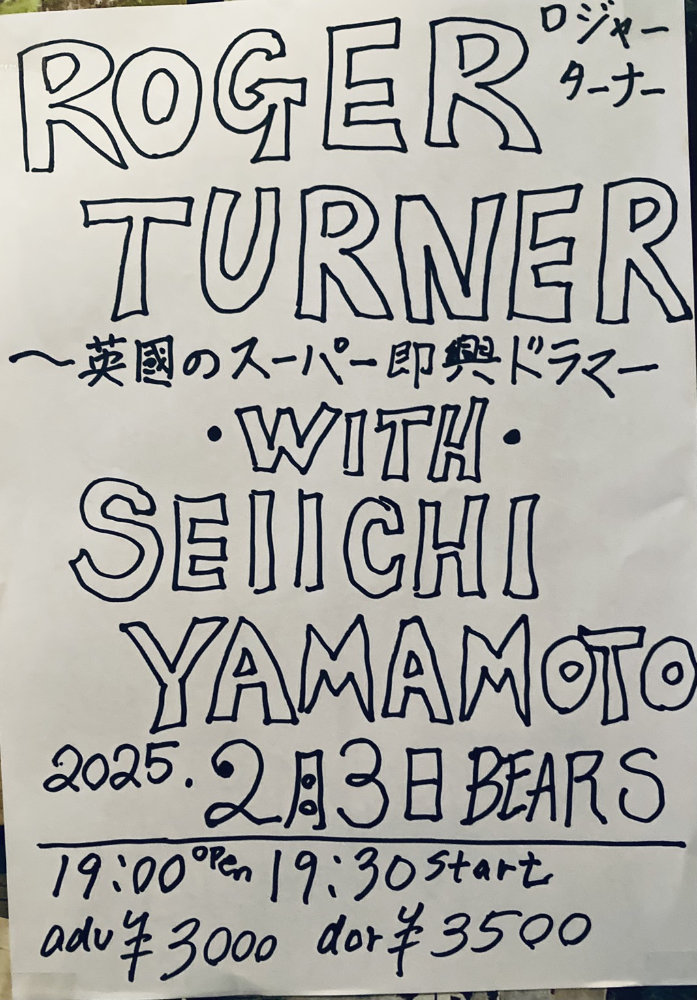 ROGER
ロジャー
ターナー
TURNER
〜英國のスーパー即興ドラマー
・WITH・
SEIICHI
YAMAMOTO
2025.2月3日 BEARS
19:00 open 19:30 start
adv ¥3000 dor ¥3500